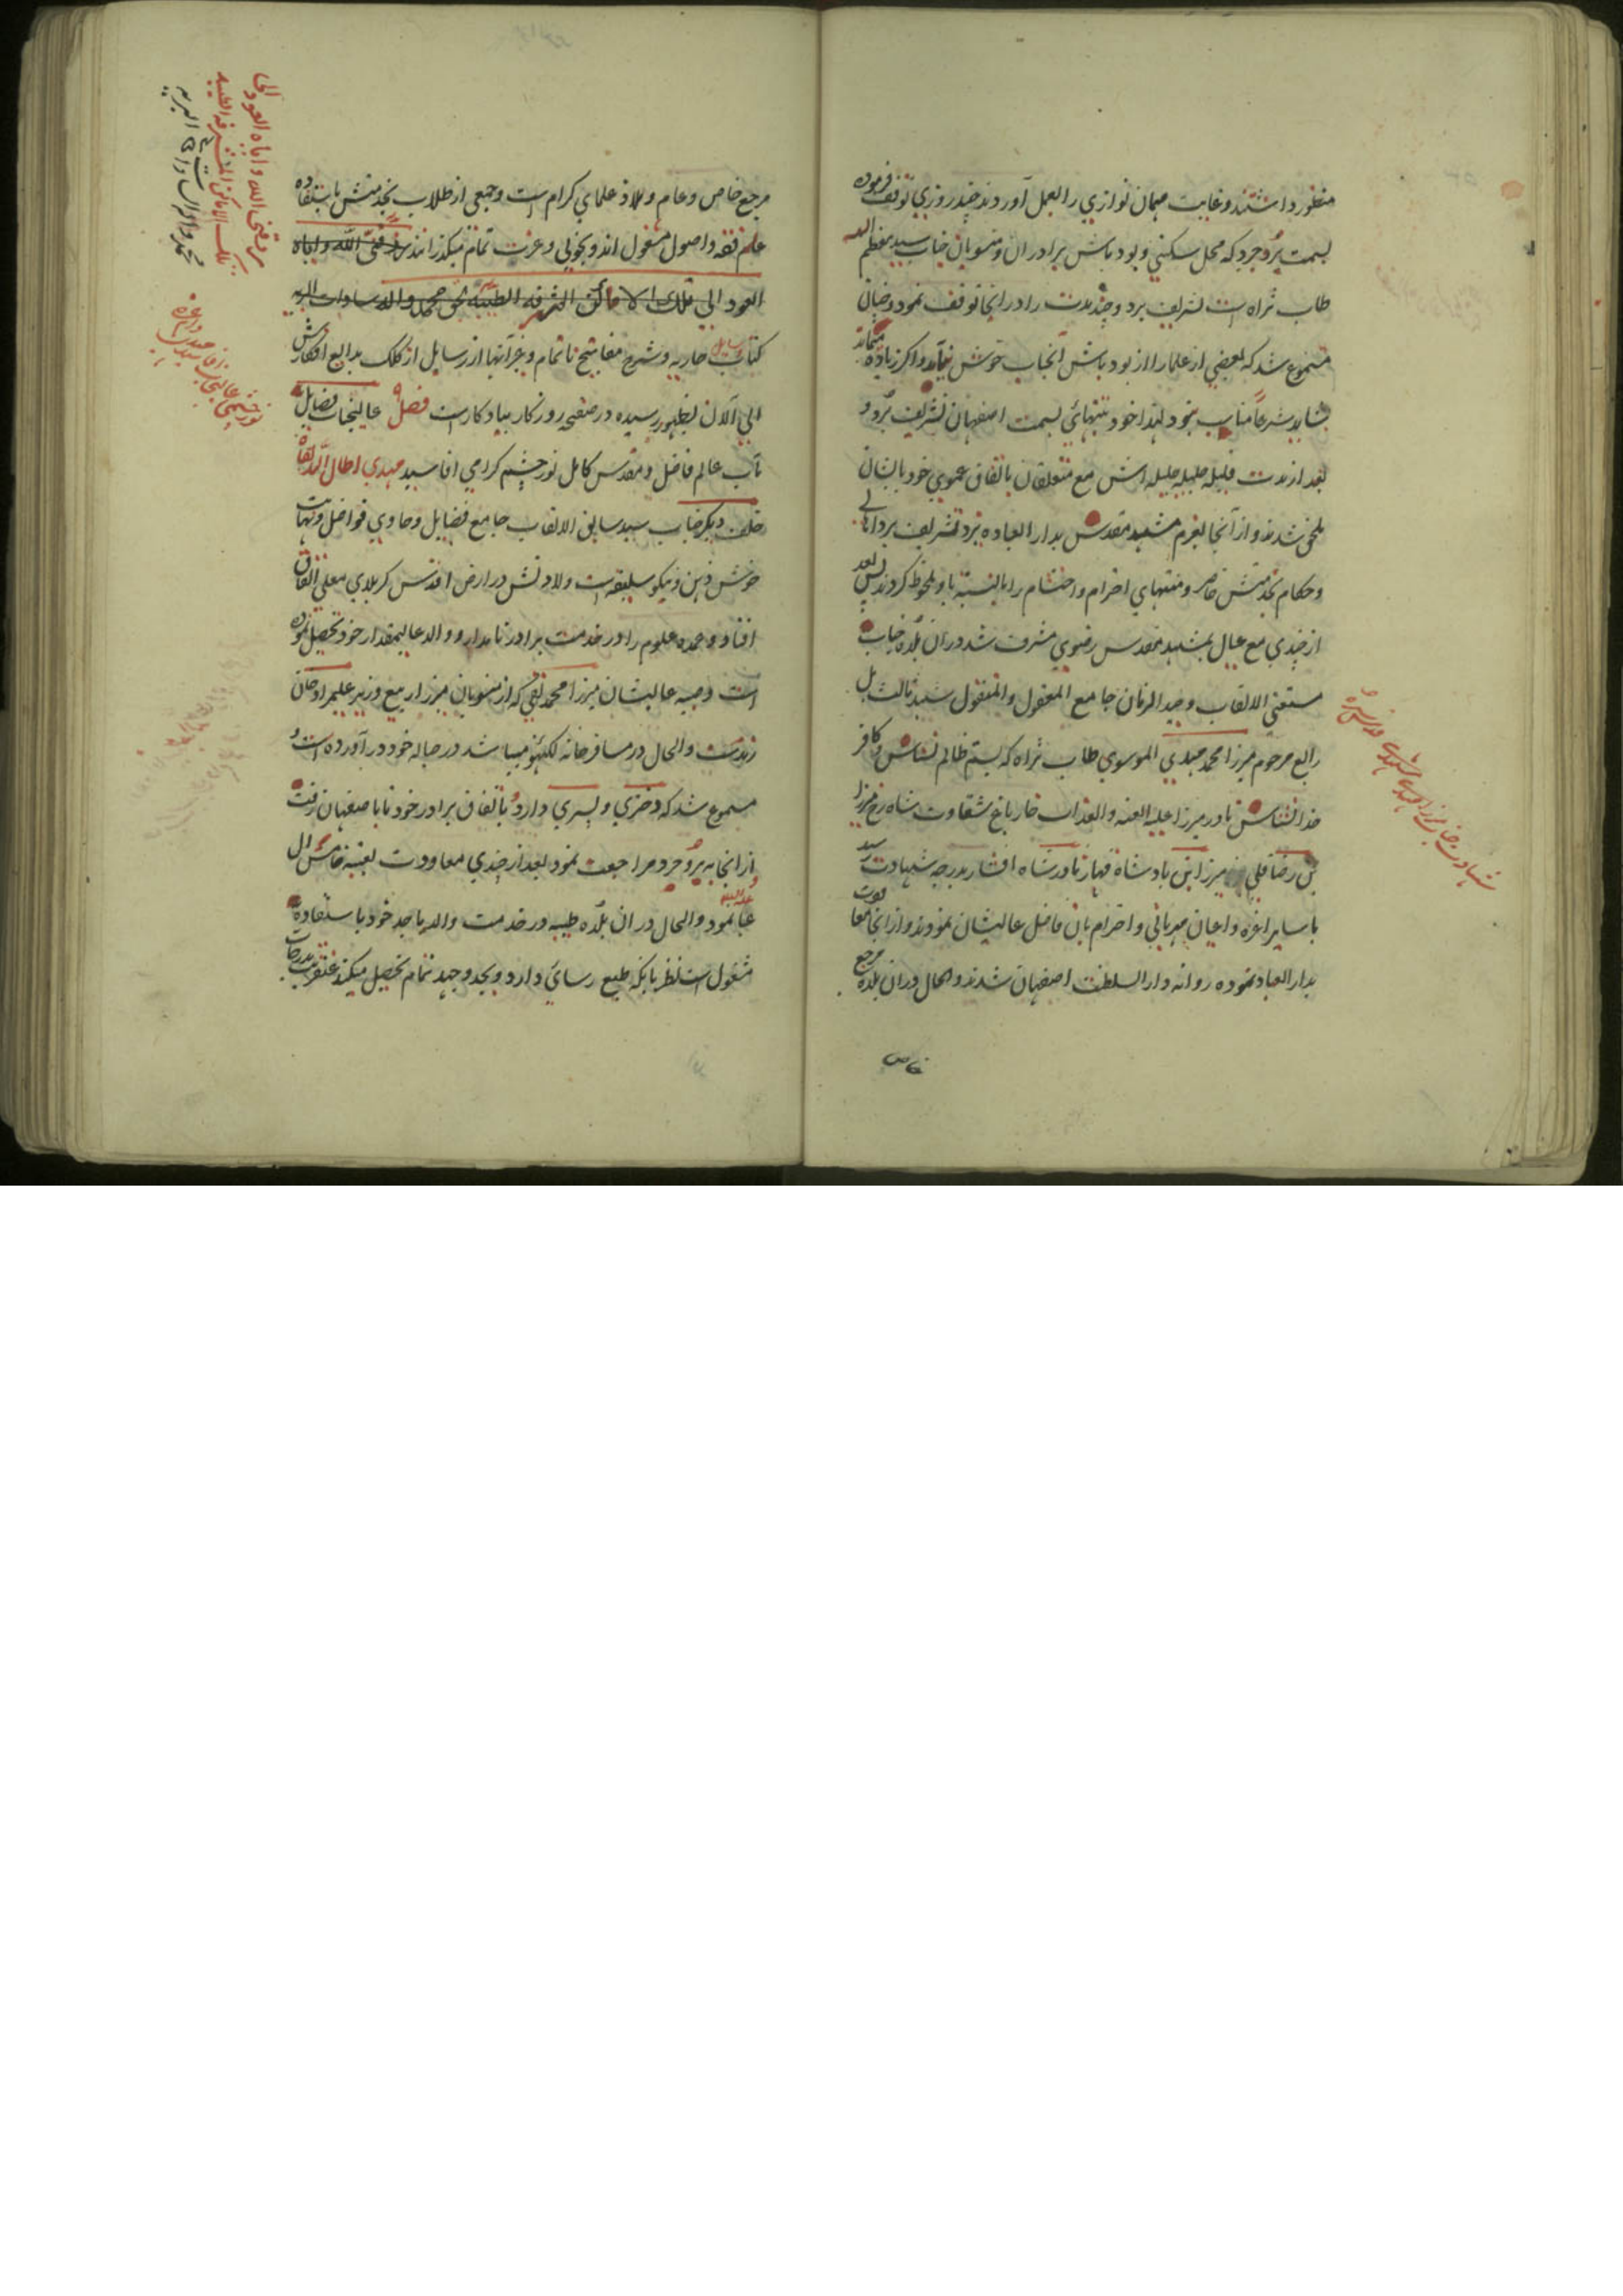 منظور داشتند و غایت مهمان نوازی را بعمل آوردند چند روزی توقف فرموده
بسمت بروجرد که محل سکنی و بود باش برادران و منسوبان جناب سید معظم الیه
طاب ثراه است تشریف برد و چند مدت را در انجا توقف نمود و چنان
مسموع شد که بعضی از علما را از بود باش آنجناب خوش نیامد و اکر زیاده میماند
شاید شرعاً مناسب نبود لهذا خود بتنهائی بسمت اصفهان تشریف برد و
بعد از مدت قلیله حلیله جلیله اش مع متعلقان باتفاق عموی خود بایشان
ملحق شدند و از آنجا بعزم مشهد مقدس بدار العباده یزد تشریف برد اهالی
و حکام بخدمتش حاضر و منتهای احترام و احتشام را بالنسبة باو ملحوظ کردند پس بعد
از چندی مع عیال بمشهد مقدس رضوی مشرف شد در ان بلده جناب
مستغنی الالقاب وحید الزمان جامع المعقول و المنقول شهید ثالث بل
رابع مرحوم میرزا محمد مهدی الموسوی طاب ثراه که بستم ظالم نشناس و کافر
خدا نشناس نادر میرزا علیه العنه و العذاب خار باغ شقاوت شاه رخ میرزا
بن رضا قلی میرزا بن بادشاه قهار نادر شاه افشار بدرجه شهادت رسید
با سایر اعزه و اعیان مهربانی و احترام بان فاضل عالیشان نمودند و از انجا معاودت
بدار العباد نموده روانه دار السلطنت اصفهان شدند و الحال در ان بلده مرجع
خاص
شهادت جناب میرزا مهدی مشهدی
مرجع خاص و عام و ملاذ علمای کرام است و جمعی از طلاب بخدمتش باستفاده
علم فقه و اصول مشغول اند و بخوبی و عزت تمام میکذرانند رزقنی الله و ایاه
العود الی تلک الاماکن الشرفه الطیبه بحق محمد و اله سادات البریه
کتاب رسایل حاریه و شرح مفاتیح ناتمام و غیر آنها از رسایل از کلک بدایع افکارش
الی الآن بظهور رسیده در صفحه روزکار بیادکار است فصل عالیجناب فضایل
مآب عالم فاضل و مقدس کامل نور چشم کرامی اقا سید مهدی اطال الله بقاه
خلف دیکر جناب سید سابق الالقاب جامع فضایل و حاوی فواضل و نهایت
خوش ذهن و نیکو سلیقه است ولادتش در ارض اقدس کربلای معلی اتفاق
افتاد و عمده علوم را در خدمت برادر نامدار و والد عالیمقدار خود تحصیل نموده
است و صبیه عالیشان میرزا محمد تقی که از منسوبان میرزا ربیع وزیر علیمراد خان
زندست و الحال در مسافرخانه لکهنؤ میباشد در حباله خود در آورده است و
مسموع شد که دختری و پسری دارد باتفاق برادر خود تا باصفهان رفت
از انجا به بروجرد مراجعت نمود بعد از چندی معاودت بعتبه خامس ال
عبا علیه السلام نمود و الحال در ان بلده طیبه در خدمت والد ماجد خود باستفاده
مشغول است نظر بانکه طبع رسائی دارد و بجد و جهد تمام تحصیل میکند عنقریب بدرجات
رزقنی الله و ایاه العود الی
تلک الاماکن المشرفه الطیبه
محمد و اله السادات البریه
نور چشمی عالیجناب اقا سید مهدی